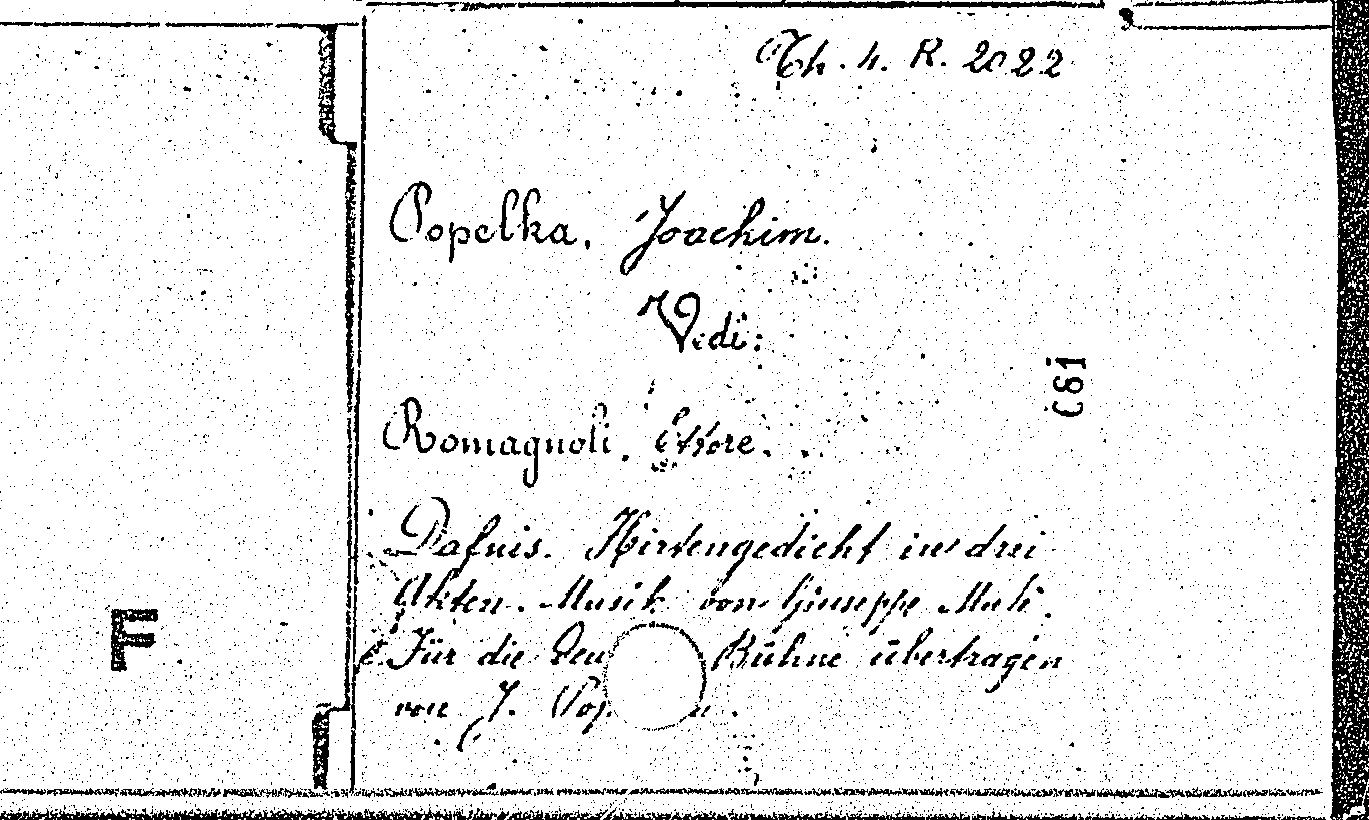 Th. 4. R. 2022
Popelka, Joachim.
Vedi:
(61
Romagnoli, Ettore.
Dafnis. Hirtengedicht in drei
Akten. Musik von Giuseppe Mulè.
Für die Deu Bühne übertragen
von J. Pop
F